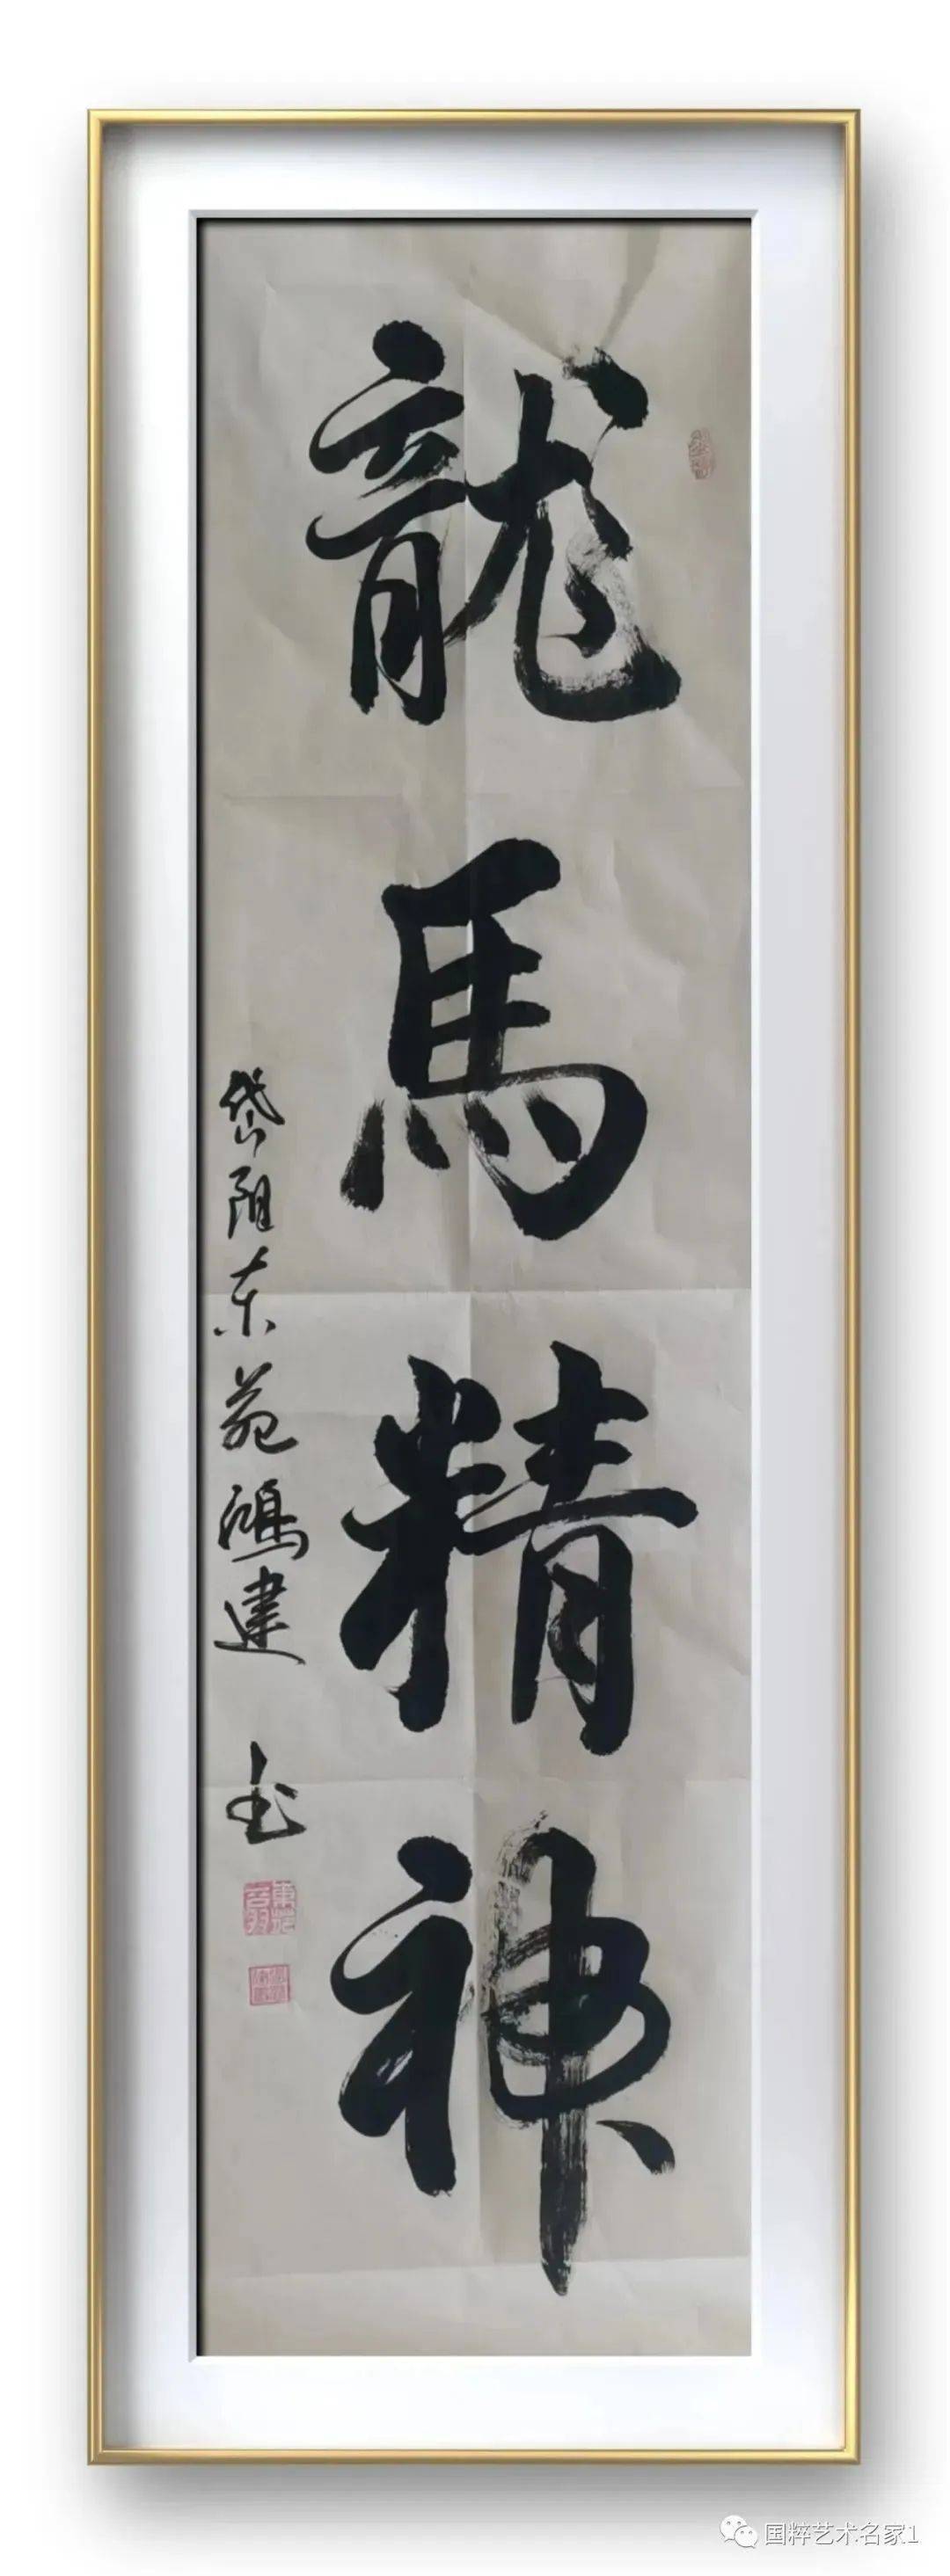 龍馬精神
岱阳东苑鴻建书
国粹艺术名家1